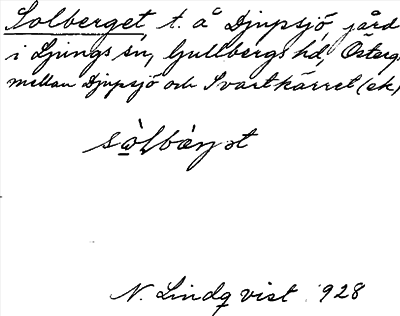 Solberget, t. å Djupsjö, jård
i Ljungs sn, Gullbergs hd, Österg
mellan Djupsjö och Svartkärret (ek)
N. Lindqvist 1928